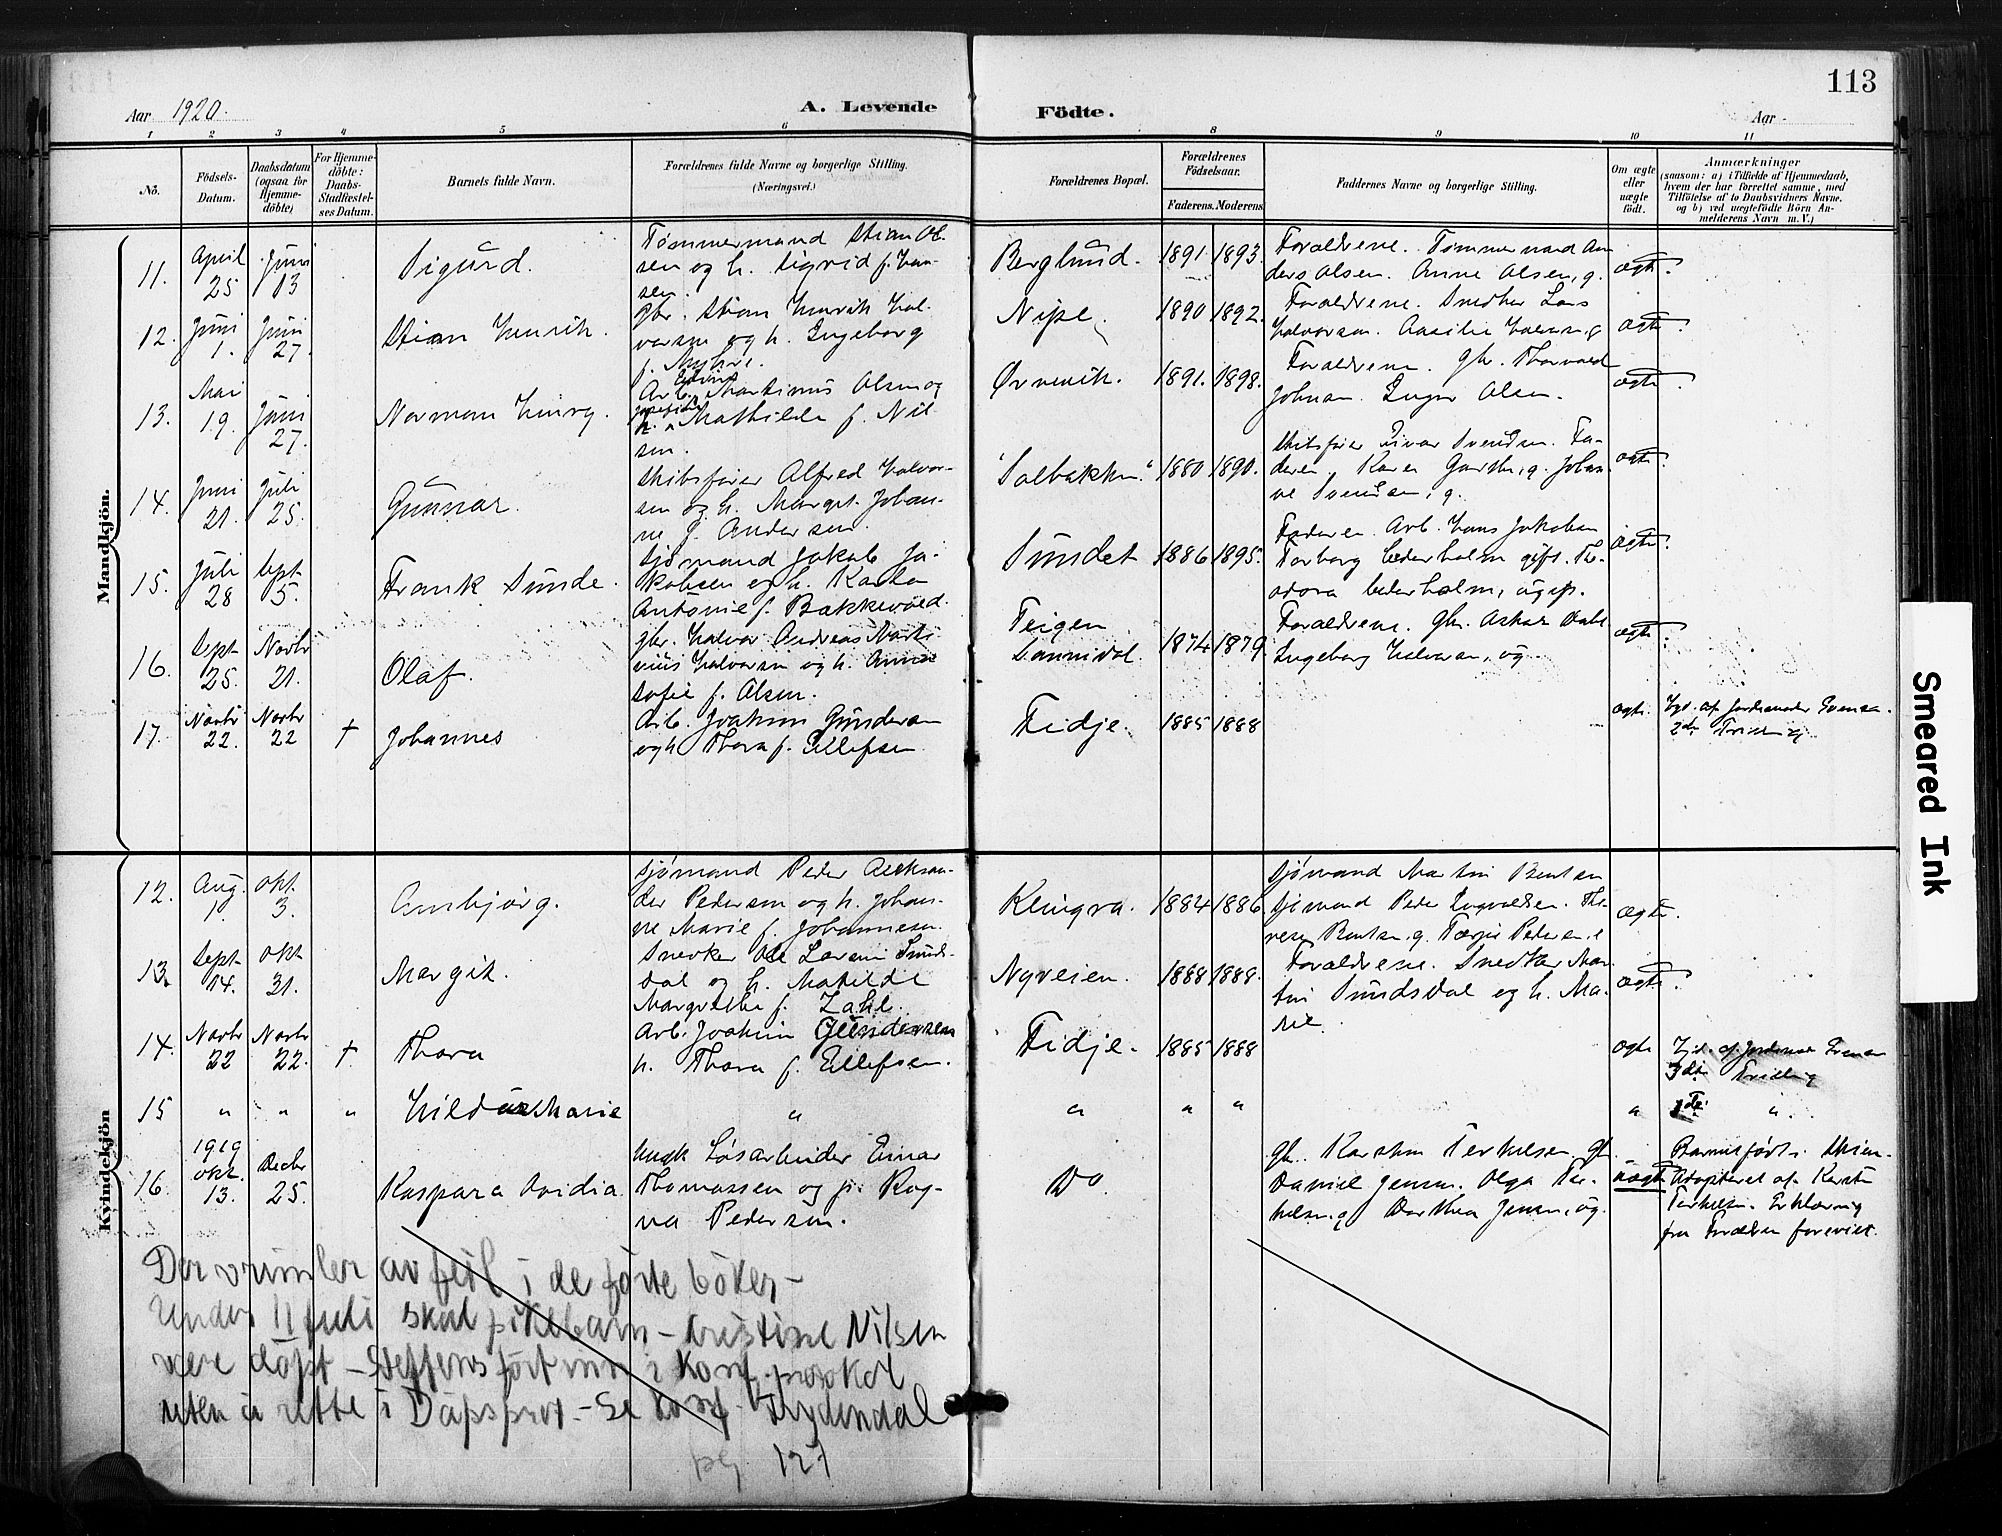 113
Aar 1920.
A. Levende
Födte.
Aar
1 2 3 4 5 6 8 9 10 11
No.
Födsels-Datum.
Daabsdatum (ogsaa for Hjemme-döbte)
For Hjemme-döbte: Daabs-Stadfæstel-ses Datum.
Barnets fulde Navn.
Forældrenes fulde Navne og borgerlige Stilling. (Næringsvei.)
Forældrenes Bopæl.
Forældrenes Födselsaar.
Faderens. Moderens.
Faddernes Navne og borgerlige Stilling.
Om ægte eller uægte födt.
Anmærkninger
(saasom: a) i Tilfælde af Hjemmedaab,
hvem der har forrettet samme, med
Tilföielse af to Daabsvidners Navne.
og b) ved uægtefödte Börn An-
melderens Navn m. V.)
Mandkjön.
11. April 25 Juni 13 Sigurd.
Tømmermand Stian Ol-
sen og h. Sigrid f. Han-
sen.
Berglund. 1891 1893.
Forældrene. Tømmermand An-
ders Olsen. Anne Olsen, g.
ægte.
12. Juni 1. Juni 27. Stian Henrik.
Gbr. Stian Henrik Hal-
vorsen og h. Ingeborg
f. Nyhre.
Nipe. 1890 1892.
Forældrene. Snedker Lars
Halvorsen. Halvorsen, g
ægte.
13. Mai 19. Juni 27. Norman Henry.
Arb. Edvin Martinius Olsen og
h. Josefine Mathilde f. Nil-
sen.
Ørnevik. 1891. 1898.
Forældrene. Gbr. Thorvald
Johnsen. Inger Olsen.
ægte.
14. Juni 21. Juli 25. Gunnar.
Skibsfører Alfred Halvor-
sen og h. Margit Johan-
ne f. Andersen.
"Solbakken." 1880 1890.
Skibsfører Einar Svendsen. Fa-
deren. Karen g. Johan-
ne Svendsen, g.
ægte.
15. Juli 28 Sept 5. Frank Sunde.
Sjømand Jakob Ja-
kobsen og h. Karla
Antonie f. Bakkevold.
Sundet 1886 1895.
Faderen. Arb. Hans Jakobsen
Torborg Cederholm gift. Th-
odora Cederholm, ugift.
ægte.
16. Sept 25. Novbr 21. Olaf.
gbr. Halvor Andreas Marti-
nius Halvorsen og h. Anne
Sofie f. Olsen.
Teigen
Sannidal. 1874 1879
Forældrene. Gbr. Dahl
Ingeborg Halvorsen, ug
ægte.
17. Novbr 22. Novbr 22 † Johannes
Arb. Joakim Gundersen
og h Thora f. Ellefsen
Fidje. 1885 1888
ægte. Hjd. af Jordemoder Evensen.
2den Trilling
Kvindekjön
12. Aug. 1. Okt. 3. Annbjørg.
Sjømand Peder Aleksan-
der Pedersen og h. Johan-
ne Marie f. Johannesen.
Klingra. 1884 1886
Sjømand Martin Bentsen
Sjømand Peder Ingvaldsen. The-
rese Bentsen. g. Pedersen
ægte.
13. Sept 14. Okt 31. Margit.
Snedker Ole Lorens Sunds-
dal og h. Matilde
Margrethe f. Zahl.
Nyveien. 1888 1888.
Forældrene. Snedker Mar-
tin Sundsdal og h. Ma-
rie.
ægte.
14. Novbr 22 Novbr 22. † Thora
Arb. Joakim Gundersen
h. Thora f. Ellefsen.
Fidje. 1885 1888
ægte Hjd. af Jordemor Evensen
3die Trilling
15 " " " Hildur Marie " " " " " 1ste "
16. 1919 Okt. 13. Decbr 25. Kaspara Ovidia
Ungk Løsarbeider Einar
Thomassen og p. Rag-
na Pedersen.
Do
gbr. Karsten Terkelsen gbr
Daniel Jensen. Olga Ter-
kelsen. g Dorthea Jensen, ug.
uægte
Barnet født i Skien.
Adopteret af Karsten
Terkelsen. Erklæring
fra Forældrene forevist.
Der vrimler av feil i de førte bøker –
Under 11 juli skal pikebarn – Kristine Nilsen
være døpt – Steffens ført inn i Konf. protokol
uten å rette i Dåpsprot. – Se Konf. Frydendal
pg 127
Smeared Ink